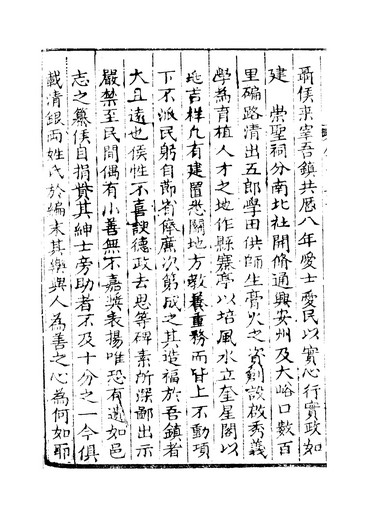 聶侯來宰吾鎮共歷八年愛士愛民以實心行實政如
建　崇聖祠分南北社開脩通興安州及大峪口數百
里碥路清出五郎學田供師生膏火之資剏設啟秀義
學為育植人才之地作縣寨亭以培風水立奎星閣以
延吉祥凡有建置悉關地方教養重務而皆上不動項
下不派民躬自節嗇俸廉次第成之其造福於吾鎮者
大且遠也侯性不喜諛德政去思等碑素所深鄙出示
嚴禁至民間偶有小善無不嘉奬表揚唯恐有遺如邑
志之纂侯自捐貲其紳士旁助者不及十分之一今俱
載清銀兩姓氏於編末其樂與人為善之心為何如耶